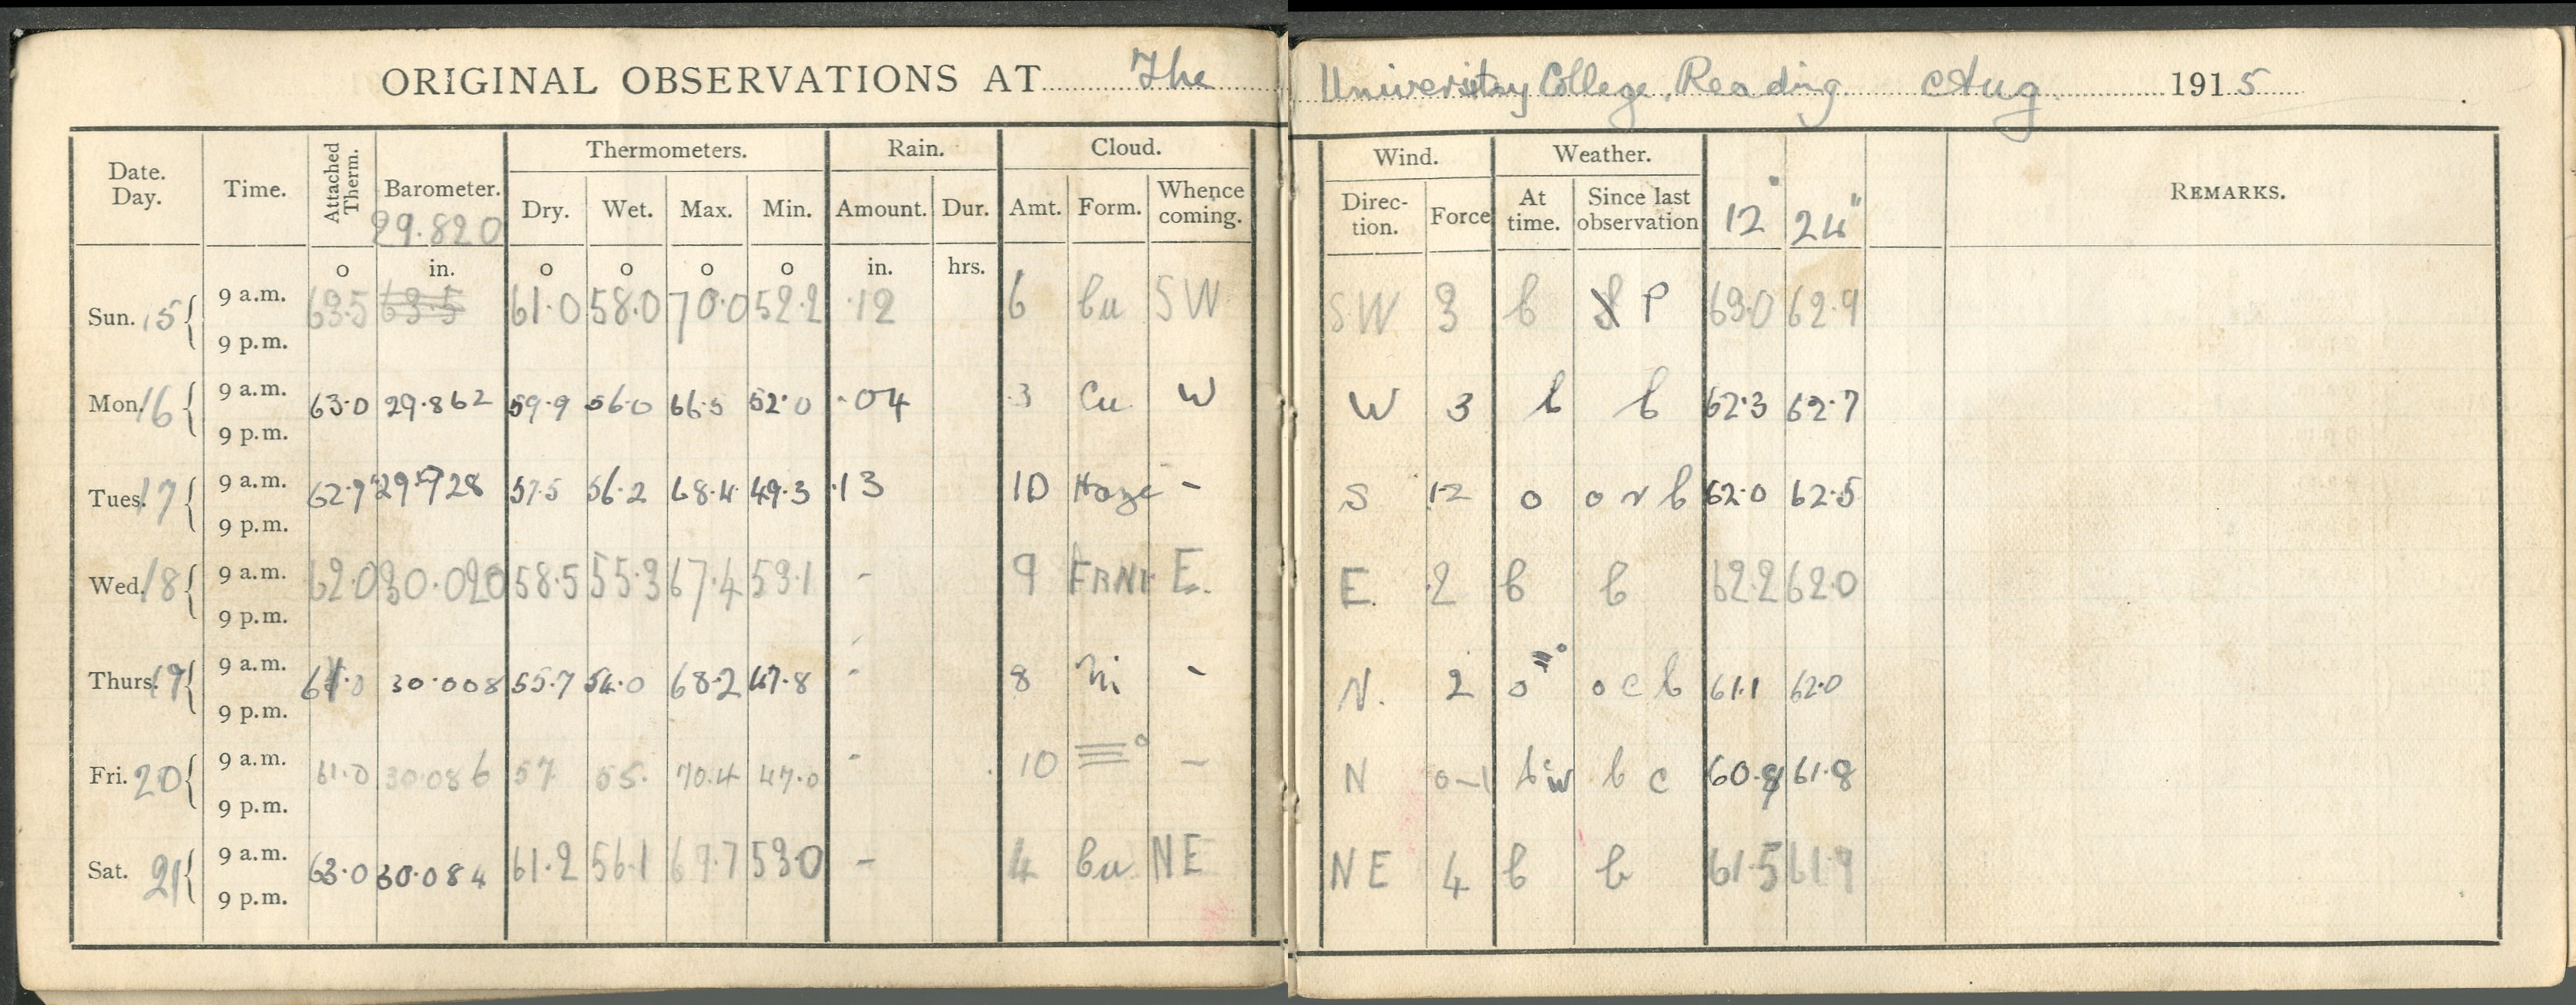 ORIGINAL OBSERVATIONS AT The University College, Reading Aug. 1915
Date. Day. Time. Attached Therm. Barometer. Thermometers. Rain. Cloud. Wind. Weather. REMARKS.
Dry. Wet. Max. Min. Amount. Dur. Amt. Form. Whence coming. Direction. Force At time. Since last observation 12" 24"
29.820
o in. o o o o in. hrs.
Sun. 15 9 a.m. 63.5 63.5 61.0 58.0 70.0 52.2 .12 6 Cu SW SW 3 b P 63.0 62.9
9 p.m.
Mon. 16 9 a.m. 63.0 29.862 59.9 56.0 66.5 52.0 .04 3 Cu W W 3 b b 62.3 62.7
9 p.m.
Tues. 17 9 a.m. 62.9 29.728 57.5 56.2 68.4 49.3 .13 10 Haze - S 1-2 o o r b 62.0 62.5
9 p.m.
Wed. 18 9 a.m. 62.0 30.020 58.5 55.3 67.4 53.1 - 9 FRNI E. E. 2 b b 62.2 62.0
9 p.m.
Thurs. 19 9 a.m. 30.008 55.7 54.0 68.2 47.8 - 8 Ni - N. 2 o o c b 61.1 62.0
9 p.m.
Fri. 20 9 a.m. 61.0 30.086 57. 55. 70.4 47.0 - 10 ≡° - N 0-1 b w b c 60.8 61.8
9 p.m.
Sat. 21 9 a.m. 63.0 30.084 61.2 56.1 69.7 53.0 - 4 Cu NE NE 4 b b 61.5 61.9
9 p.m.